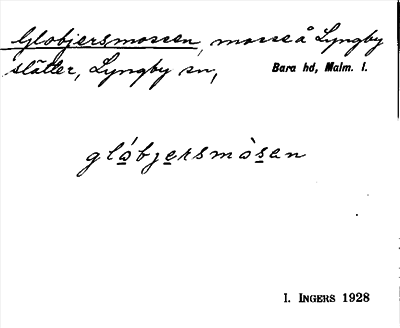 Globjersmossen, mosse å Lyngby
slätter, Lyngby sn, Bara hd, Malm. l.
glóbjersmòsen
I. INGERS 1928